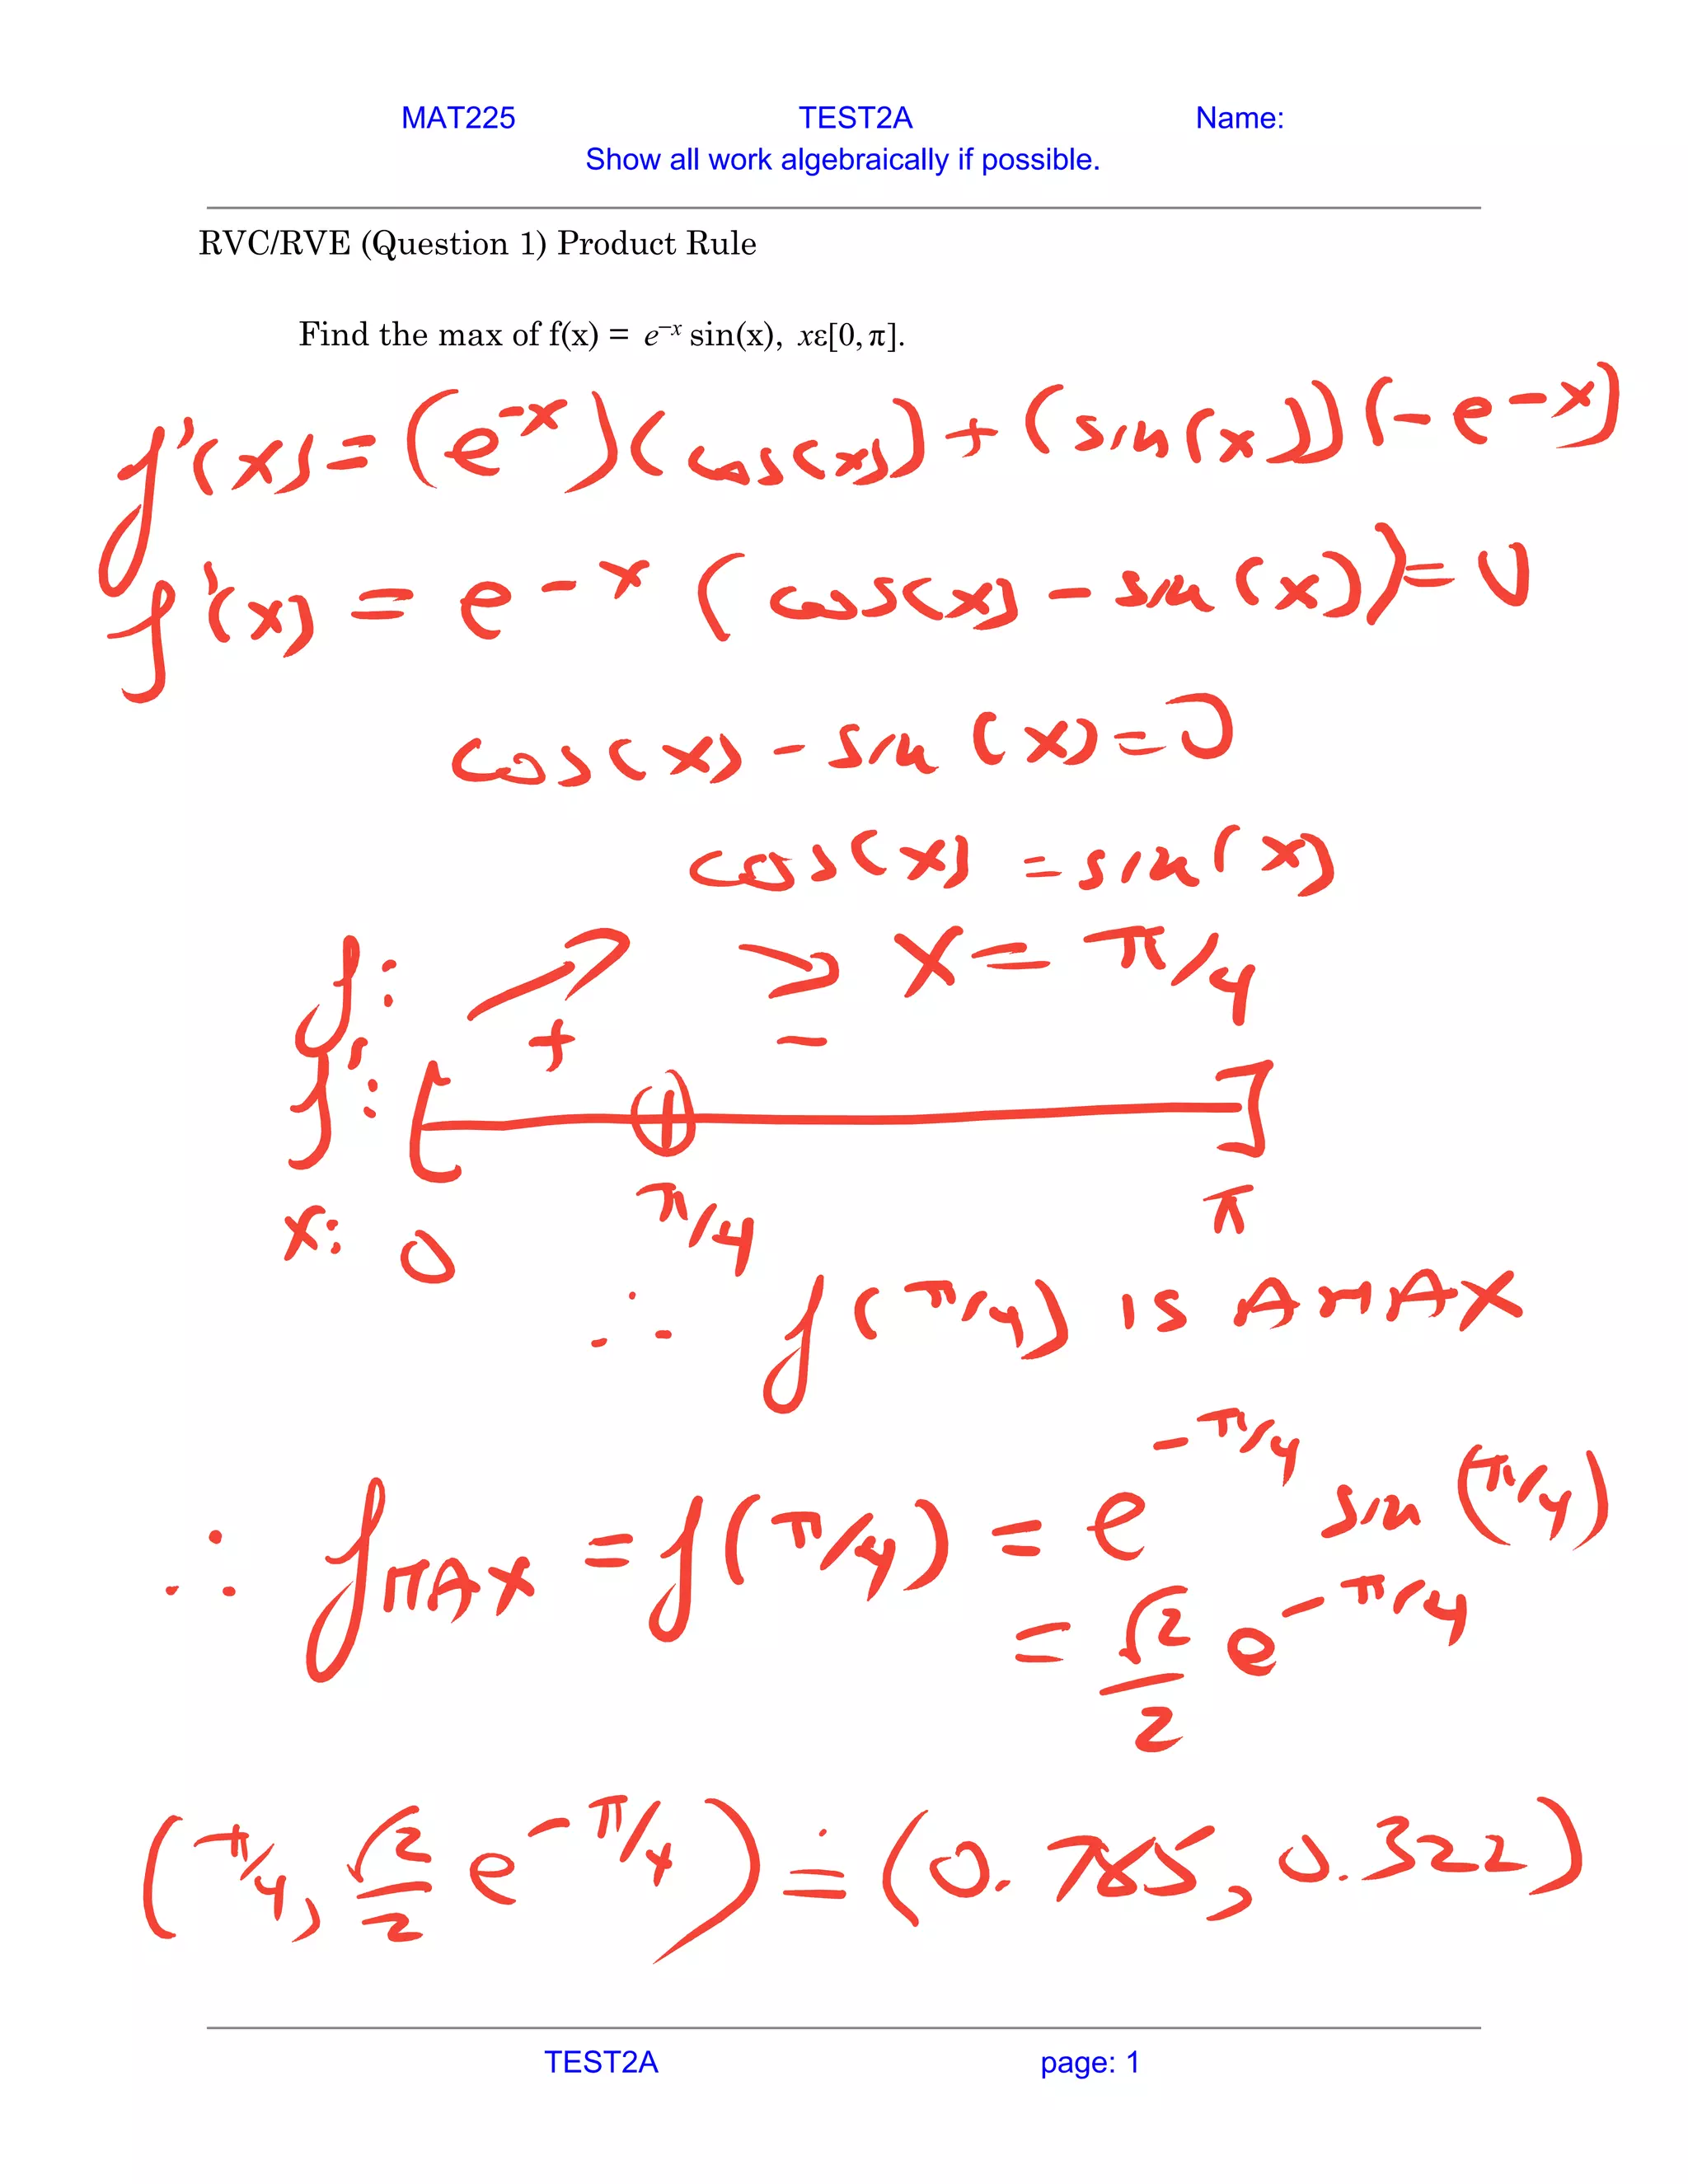 MAT225 TEST2A Name:
Show all work algebraically if possible.
RVC/RVE (Question 1) Product Rule
Find the max of f(x) = e⁻ˣ sin(x), xε[0, π].
f'(x) = (e⁻ˣ)(cos(x)) + (sin(x))(-e⁻ˣ)
f'(x) = e⁻ˣ (cos(x) - sin(x)) = 0
cos(x) - sin(x) = 0
cos(x) = sin(x)
f: ↗ ↘ x = π/4
f': + -
x: 0 π/4 π
∴ f(π/4) is A MAX
∴ fMAX = f(π/4) = e^(-π/4) sin(π/4)
= √2/2 e^(-π/4)
(π/4, √2/2 e^(-π/4)) ≐ (0.785, 0.322)
TEST2A page: 1